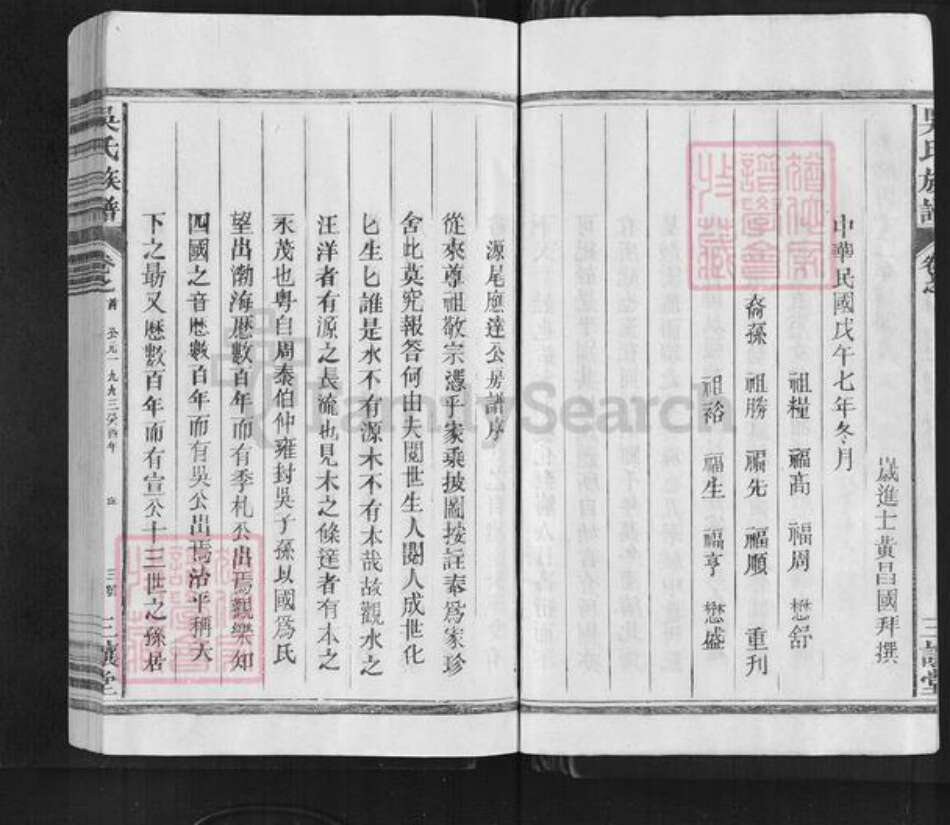 吳氏族譜
卷之
三讓堂
歲進士黃昌國拜撰
中華民國戊午七年冬月
祖糧 福高 福周 懋舒
裔孫 祖勝 福先 福順 重刊
祖裕 福生 福亨 懋盛
源尾應達公房譜序
從來尊祖敬宗憑乎家乘披圖按註奉爲家珍
舍此莫究報答何由夫閱世生人閱人成世化
匕生匕誰是水不有源木不有本哉故觀水之
汪洋者有源之長流也見木之條達者有本之
永茂也粵自周泰伯仲雍封吳子孫以國爲氏
望出渤海歷數百年而有季札公出焉觀樂知
四國之音歷數百年而有吳公出焉治平稱天
下之最又歷數百年而有宣公十三世之孫居
吳氏族譜
卷之首
公元一九九三癸酉年
三讓堂
FamilySearch